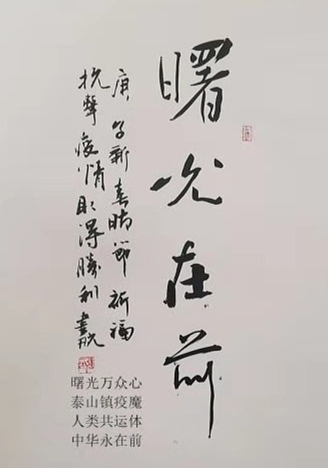 曙光在前
庚子新春时节祈福
抗击疫情取得胜利
曙光万众心
泰山镇疫魔
人类共运体
中华永在前